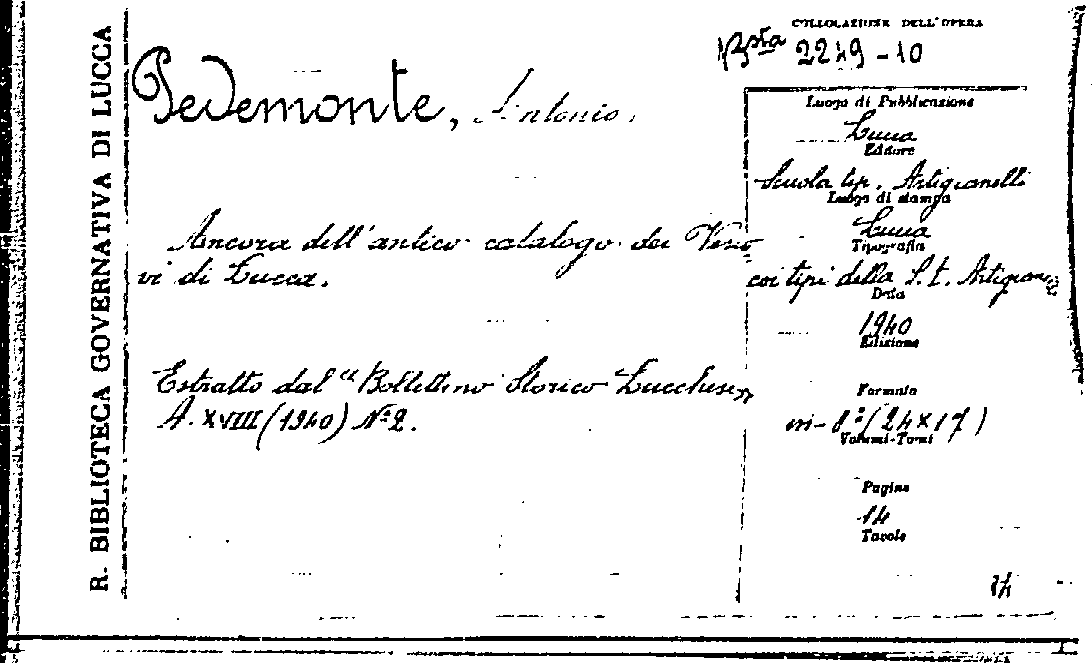 R. BIBLIOTECA GOVERNATIVA DI LUCCA
COLLOCAZIONE DELL'OPERA
Bsta 2249-10
Pedemonte, Antonio.
Ancora dell'antico catalogo dei Vesco
vi di Lucca.
Estratto dal "Bollettino Storico Lucchese"
A. XVIII (1940) Nº 2.
Luogo di Pubblicazione
Lucca
Editore
Scuola tip. Artigianelli
Luogo di stampa
Lucca
Tipografia
coi tipi della S. t. Artigianelli
Data
1940
Edizione
Formato
in-8º (24×17)
Volumi-Tomi
Pagine
14
Tavole